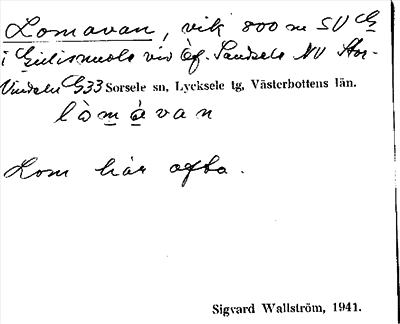 Lomavan, vik 800 m SV G
i Giltsmuole vid Öf. Sandsele NV Stor-
Vindeln G33 Sorsele sn, Lycksele tg, Västerbottens län.
lòmávan
Lom här ofta.
Sigvard Wallström, 1941.